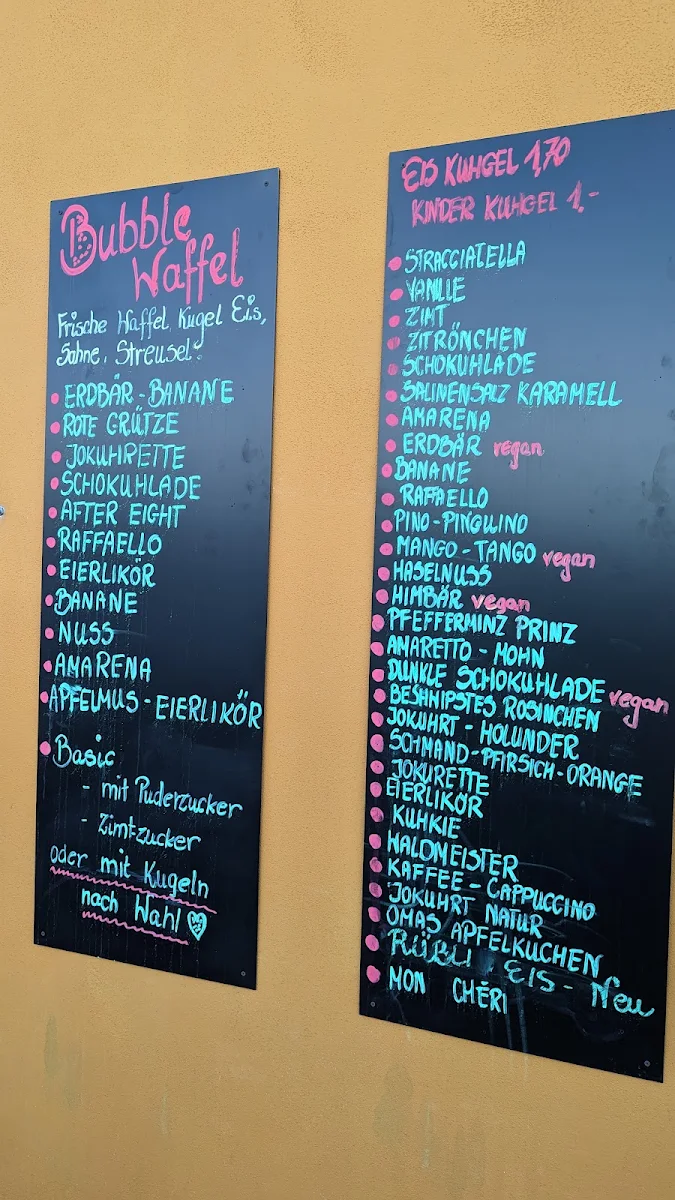 Bubble
Waffel
Frische Waffel, Kugel Eis,
Sahne, Streusel.
ERDBÄR - BANANE
ROTE GRÜTZE
JOKUHRETTE
SCHOKUHLADE
AFTER EIGHT
RAFFAELLO
EIERLIKÖR
BANANE
NUSS
AMARENA
APFELMUS - EIERLIKÖR
Basic
- mit Puderzucker
- Zimtzucker
oder mit Kugeln
nach Wahl
EIS KUHGEL 1,70
KINDER KUHGEL 1,-
STRACCIATELLA
VANILLE
ZIMT
ZITRÖNCHEN
SCHOKUHLADE
SALINENSALZ KARAMELL
AMARENA
ERDBÄR vegan
BANANE
RAFFAELLO
PINO - PINGUINO
MANGO - TANGO vegan
HASELNUSS
HIMBÄR vegan
PFEFFERMINZ PRINZ
AMARETTO - MOHN
DUNKLE SCHOKUHLADE vegan
BESHWIPSTES ROSINCHEN
JOKUHRT - HOLUNDER
SCHMAND - PFIRSICH - ORANGE
JOKURETTE
EIERLIKÖR
KUHKIE
WALDMEISTER
KAFFEE - CAPPUCCINO
JOKUHRT NATUR
OMAS APFELKUCHEN
RÜBLI EIS - Neu
MON CHÉRI